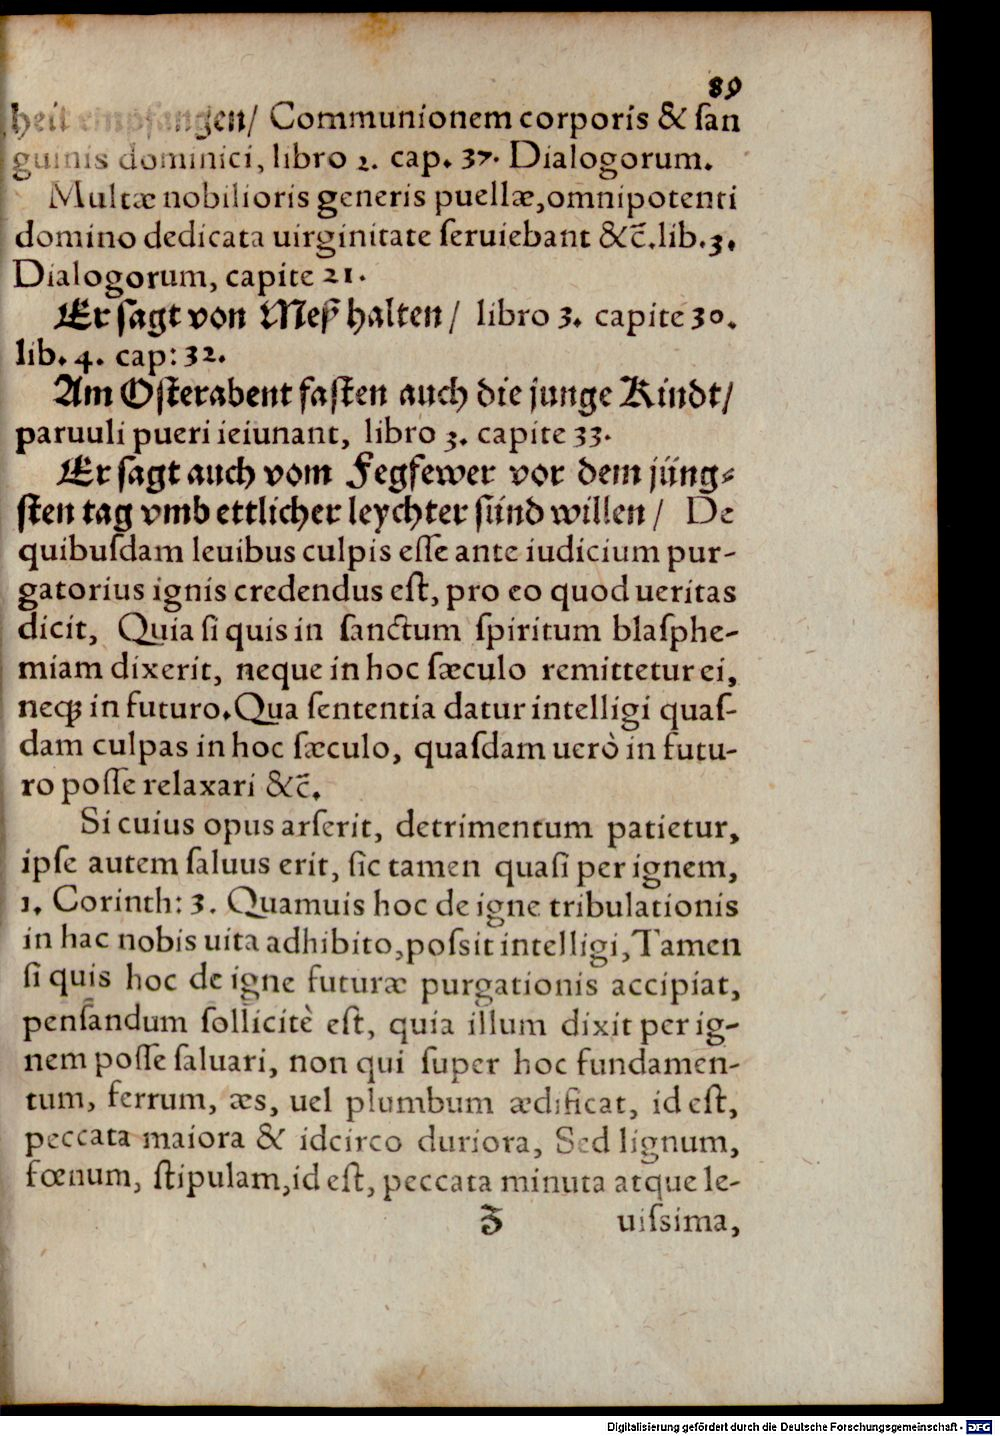 89
heit empfangen/ Communionem corporis & ſan
guinis dominici, libro 2. cap. 37. Dialogorum.
Multæ nobilioris generis puellæ, omnipotenti
domino dedicata uirginitate ſeruiebant &c̃. lib. 3.
Dialogorum, capite 21.
Er ſagt von Meß halten/ libro 3. capite 30.
lib. 4. cap: 32.
Am Oſterabent faſten auch die junge Kindt/
paruuli pueri ieiunant, libro 3. capite 33.
Er ſagt auch vom Fegfewer vor dem jüng⸗
ſten tag vmb ettlicher leychter ſünd willen/ De
quibuſdam leuibus culpis eſſe ante iudicium pur-
gatorius ignis credendus eſt, pro eo quod ueritas
dicit, Quia ſi quis in ſanctum ſpiritum blaſphe-
miam dixerit, neque in hoc ſæculo remittetur ei,
neqꝫ in futuro. Qua ſententia datur intelligi quaſ-
dam culpas in hoc ſæculo, quaſdam uerò in futu-
ro poſſe relaxari &c̃.
Si cuius opus arſerit, detrimentum patietur,
ipſe autem ſaluus erit, ſic tamen quaſi per ignem,
1. Corinth: 3. Quamuis hoc de igne tribulationis
in hac nobis uita adhibito, poſsit intelligi, Tamen
ſi quis hoc de igne futuræ purgationis accipiat,
penſandum ſollicitè eſt, quia illum dixit per ig-
nem poſſe ſaluari, non qui ſuper hoc fundamen-
tum, ferrum, æs, uel plumbum ædificat, id eſt,
peccata maiora & idcirco duriora, Sed lignum,
fœnum, ſtipulam, id eſt, peccata minuta atque le-
Z uiſsima,
Digitalisierung gefördert durch die Deutsche Forschungsgemeinschaft - DFG